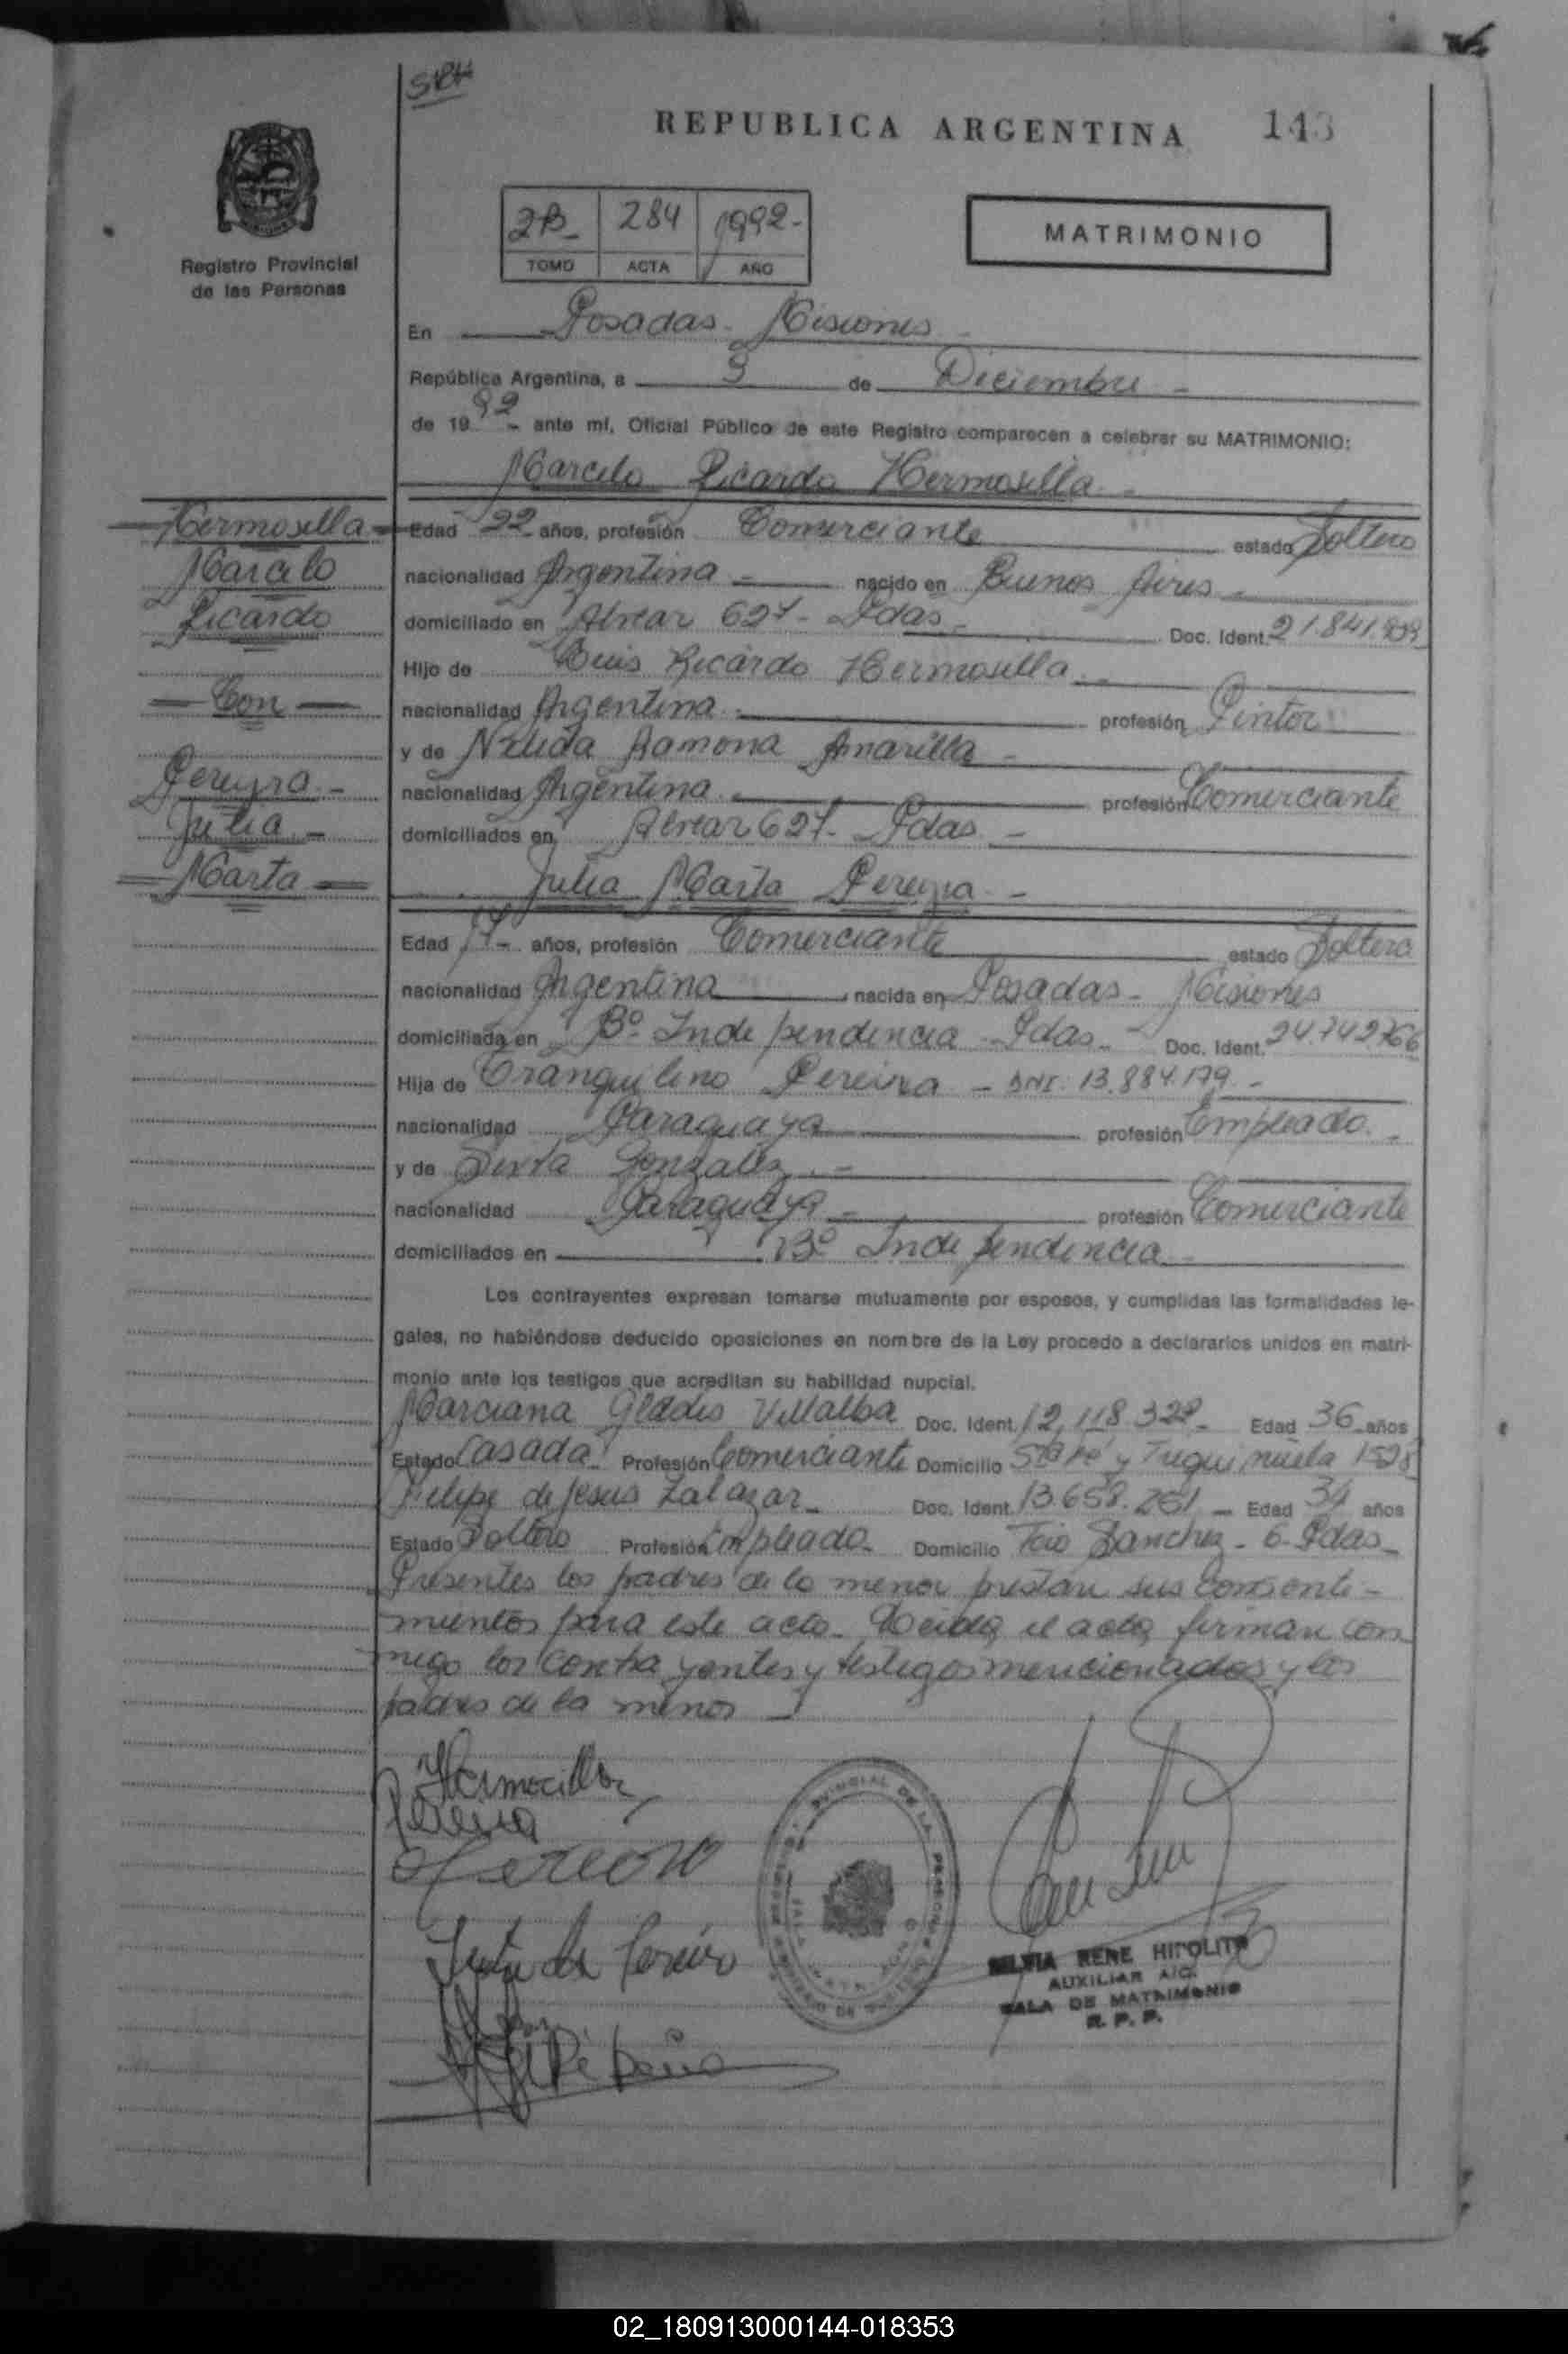 REPUBLICA ARGENTINA 143
Registro Provincial
de las Personas
2B- 284 1992-
TOMO ACTA AÑO
MATRIMONIO
En Posadas - Misiones
República Argentina, a 9 de Diciembre -
de 1992 - ante mí, Oficial Público de este Registro comparecen a celebrar su MATRIMONIO:
Marcelo Ricardo Hermosilla -
Hermosilla
Marcelo
Ricardo
Con
Pereyra -
Julia -
Marta
Edad 22 años, profesión Comerciante estado Soltero
nacionalidad Argentina - nacido en Buenos Aires -
domiciliado en Alvear 627 - Pdas - Doc. Ident. 21.841.909
Hijo de Luis Ricardo Hermosilla -
nacionalidad Argentina - profesión Pintor
y de Nélida Ramona Amarilla -
nacionalidad Argentina - profesión Comerciante
domiciliados en Alvear 627 - Pdas -
Julia Marta Pereyra -
Edad 17 - años, profesión Comerciante estado Soltera
nacionalidad Argentina nacida en Posadas - Misiones
domiciliada en Bº Independencia - Pdas - Doc. Ident. 24.742.766
Hija de Tranquilino Pereira - DNI: 13.884.179 -
nacionalidad Paraguaya profesión Empleado -
y de Sixta Gonzalez -
nacionalidad Paraguaya - profesión Comerciante
domiciliados en Bº Independencia
Los contrayentes expresan tomarse mutuamente por esposos, y cumplidas las formalidades le-
gales, no habiéndose deducido oposiciones en nombre de la Ley procedo a declararlos unidos en matri-
monio ante los testigos que acreditan su habilidad nupcial.
Marciana Gladis Villalba Doc. Ident. 12.118.322 - Edad 36 años
Estado Casada Profesión Comerciante Domicilio Sta Fé y 1528
Felipe de Jesus Zalazar - Doc. Ident. 13.658.261 - Edad 34 años
Estado Soltero Profesión Empleado - Domicilio Fcio Sanchez - 6 - Pdas -
Presentes los padres de la menor prestan sus consenti-
mientos para este acto - Leida el acta, firman con
migo los contrayentes y testigos mencionados y los
padres de la menor -
Hermocilla
Pereira
SILVIA RENE HIPOLITO
AUXILIAR A/C.
SALA DE MATRIMONIO
R. P. P.
02_180913000144-018353